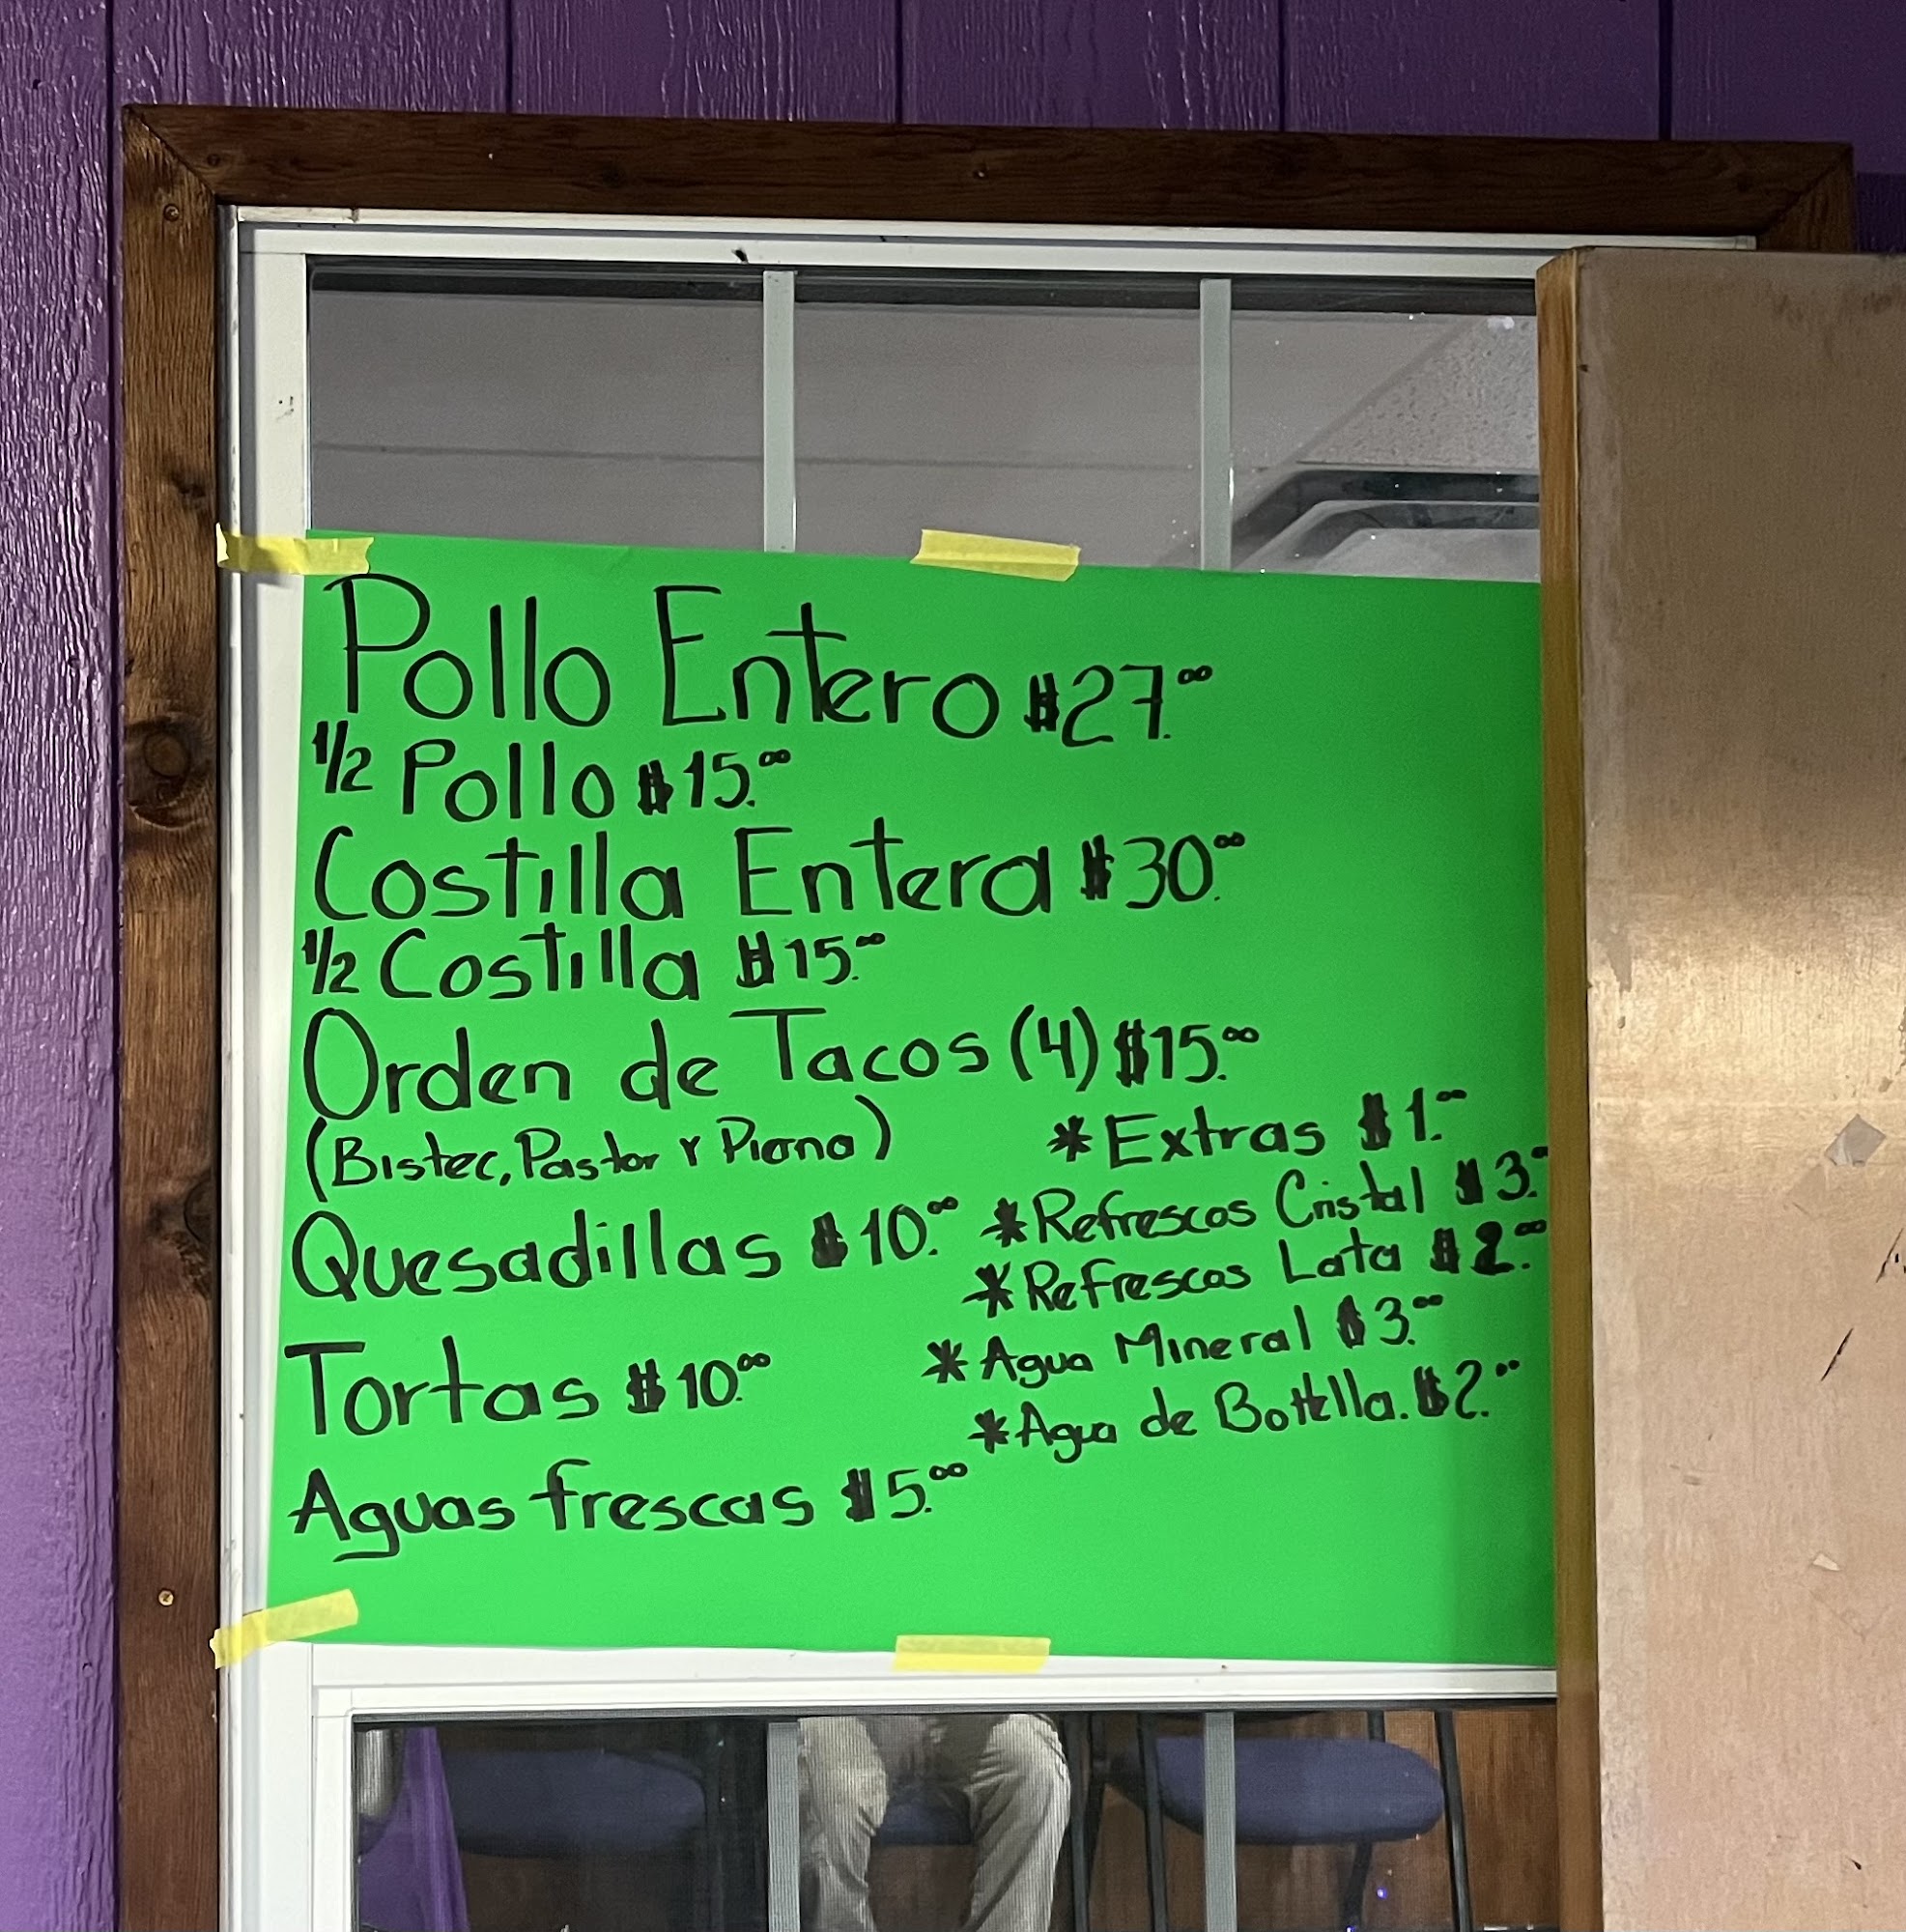 Pollo Entero $27.00
1/2 Pollo $15.00
Costilla Entera $30.00
1/2 Costilla $15.00
Orden de Tacos (4) $15.00
(Bistec, Pastor y Pierna)
*Extras $1.00
Quesadillas $10.00
*Refrescos Cristal $3.00
*Refrescos Lata $2.00
Tortas $10.00
*Agua Mineral $3.00
*Agua de Bottella. $2.00
Aguas frescas $5.00